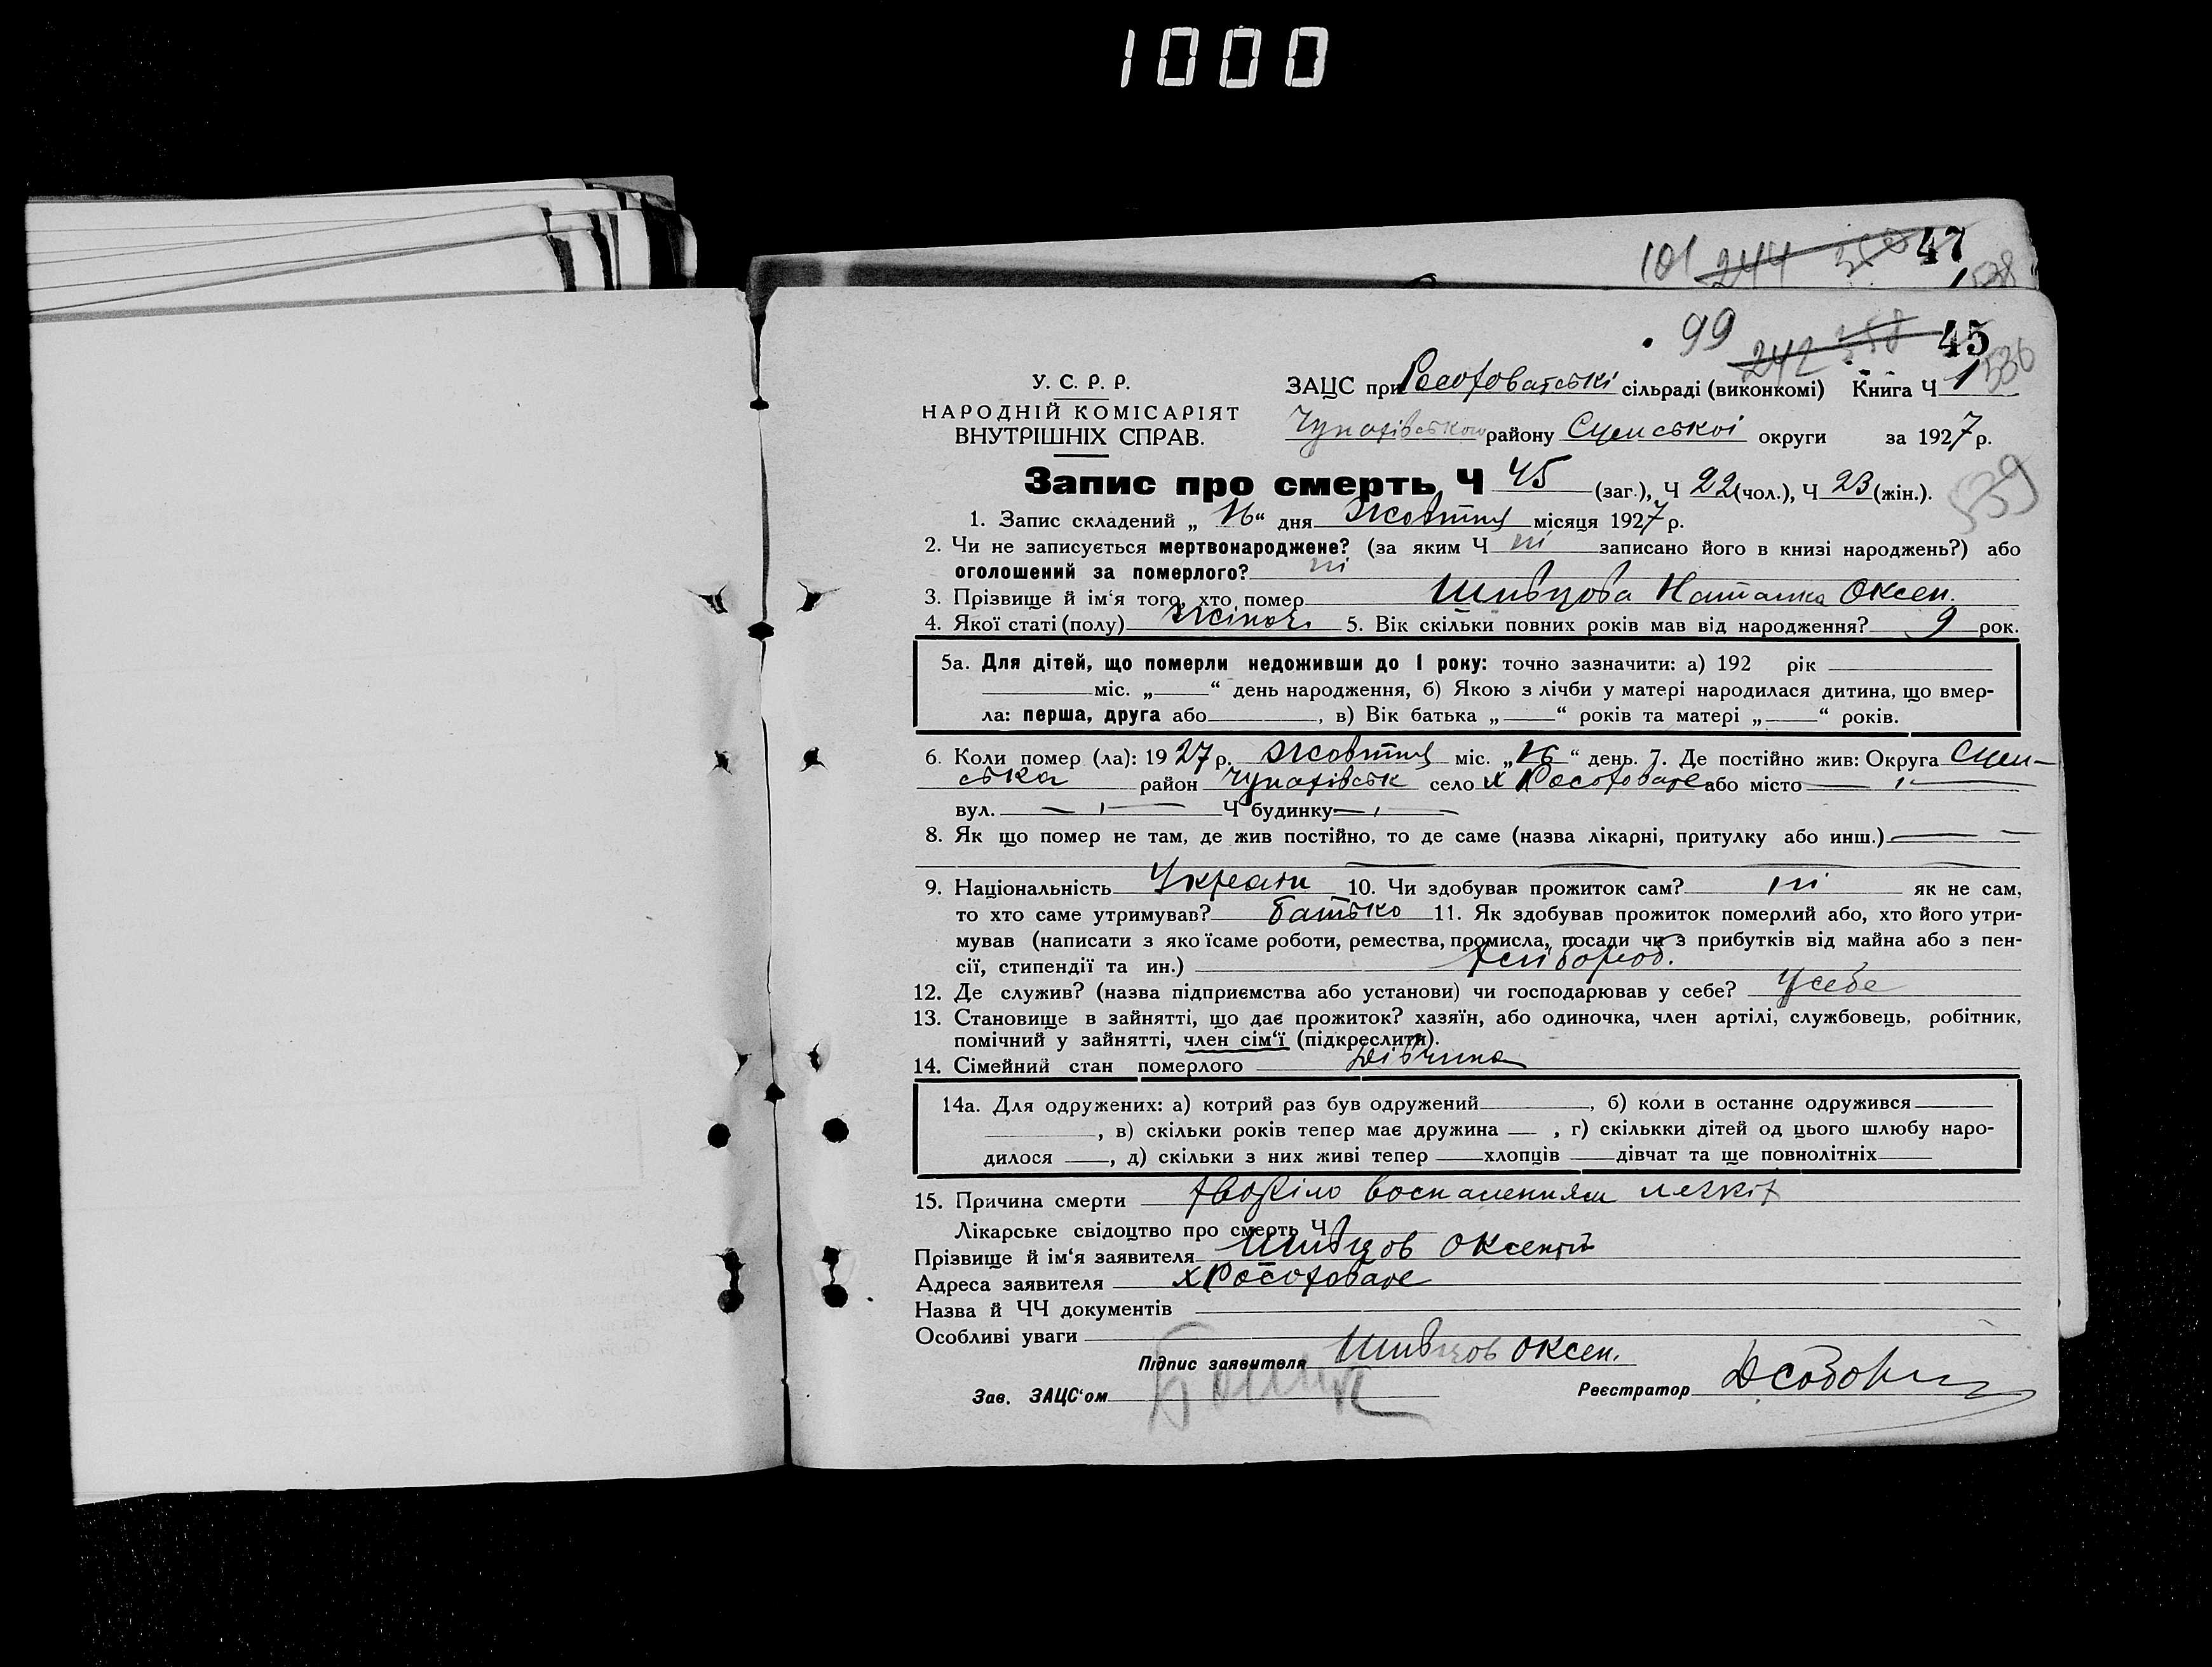 1000
101 244 47
99 242 358 45
536
У. С. Р. Р.
НАРОДНІЙ КОМІСАРІЯТ
ВНУТРІШНІХ СПРАВ.
ЗАЦС при Рософоватські сільраді (виконкомі) Книга Ч 1
Чупахівського району Сумської округи за 1927 р.
Запис про смерть Ч 45 (заг.), Ч 22 (чол.), Ч 23 (жін.).
539
1. Запис складений „ 16 “ дня Жовтня місяця 1927 р.
2. Чи не записується мертвонароджене? (за яким Ч ні записано його в книзі народжень?) або
оголошений за померлого? ні
3. Прізвище й ім‘я того, хто помер Шивцова Наталка Оксен.
4. Якої статі (полу) жіноч. 5. Вік скільки повних років мав від народження? 9 рок.
5а. Для дітей, що померли недоживши до 1 року: точно зазначити: а) 192 рік
міс. „ “ день народження, б) Якою з лічби у матері народилася дитина, що вмер-
ла: перша, друга або , в) Вік батька „ “ років та матері „ “ років.
6. Коли помер (ла): 1927 р. Жовтня міс. „16“ день. 7. Де постійно жив: Округа Сум-
ська район Чупахівськ село х Рософовате або місто
вул. Ч будинку
8. Як що помер не там, де жив постійно, то де саме (назва лікарні, притулку або инш.)
9. Національність Україн 10. Чи здобував прожиток сам? ні як не сам,
то хто саме утримував? батько 11. Як здобував прожиток померлий або, хто його утри-
мував (написати з якоїсаме роботи, ремества, промисла, посади чи з прибутків від майна або з пен-
сії, стипендії та ин.) хлібороб.
12. Де служив? (назва підприємства або установи) чи господарював у себе? У себе
13. Становище в зайнятті, що дає прожиток? хазяїн, або одиночка, член артілі, службовець, робітник,
помічний у зайнятті, член сім‘ї (підкреслити).
14. Сімейний стан померлого дівчина
14а. Для одружених: а) котрий раз був одружений , б) коли в останнє одружився
, в) скільки років тепер має дружина , г) скількки дітей од цього шлюбу наро-
дилося , д) скільки з них живі тепер хлопців дівчат та ще повнолітніх
15. Причина смерти хворіло воспаленням легкіх
Лікарське свідоцтво про смерть Ч
Прізвище й ім‘я заявителя Шивцов Оксентій
Адреса заявителя х Рософовате
Назва й ЧЧ документів
Особливі уваги
Підпис заявителя Шивцов Оксен.
Зав. ЗАЦС‘ом
Реєстратор